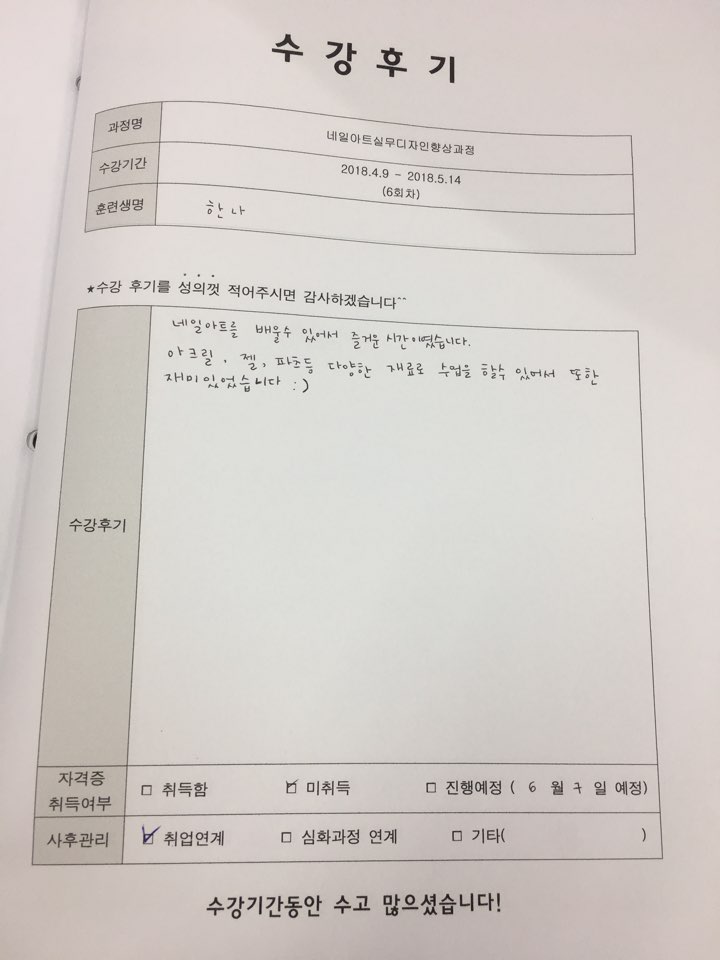 수강후기
과정명 네일아트실무디자인향상과정
수강기간 2018.4.9 - 2018.5.14
(6회차)
훈련생명 한나
★수강 후기를 성의껏 적어주시면 감사하겠습니다^^
네일아트를 배울수 있어서 즐거운 시간이였습니다.
아크릴, 젤, 파츠등 다양한 재료로 수업을 할수 있어서 또한
재미있었습니다 :)
수강후기
자격증
취득여부
□ 취득함 ☑ 미취득 □ 진행예정 ( 6 월 7 일 예정)
사후관리 ☑ 취업연계 □ 심화과정 연계 □ 기타( )
수강기간동안 수고 많으셨습니다!